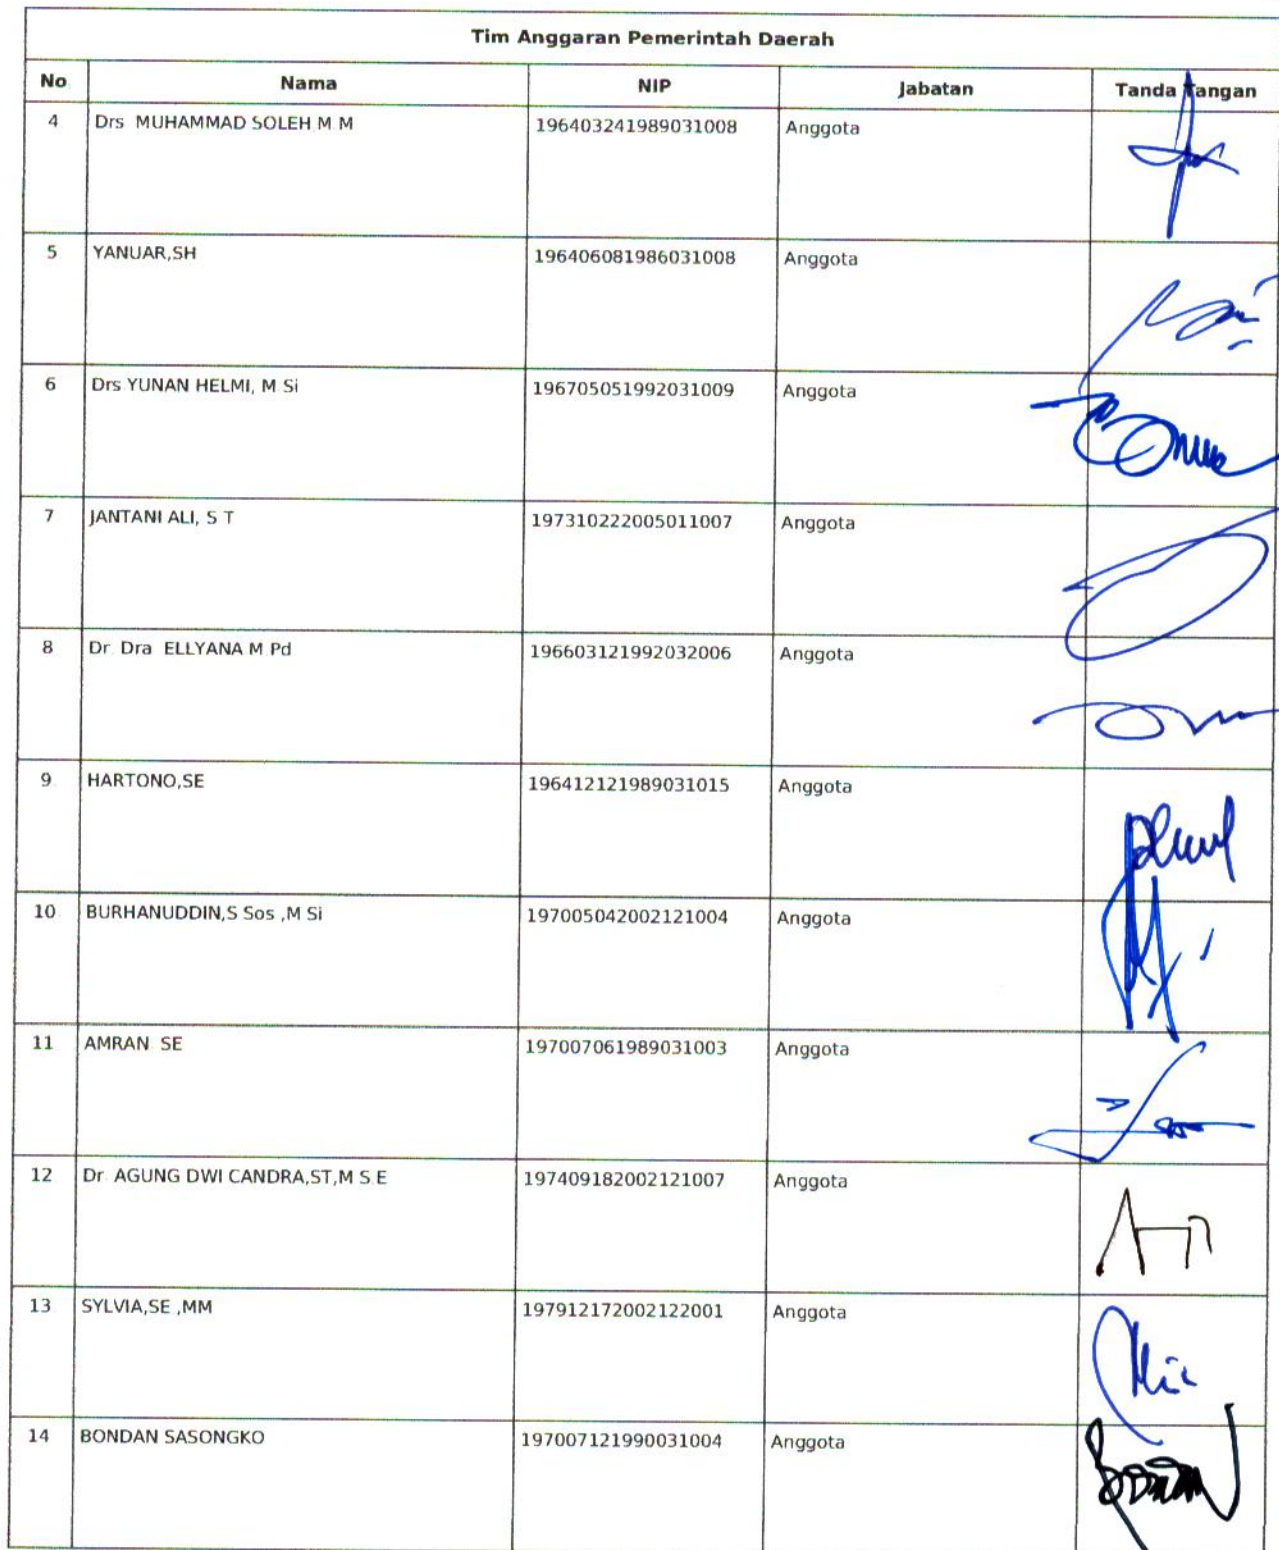 Tim Anggaran Pemerintah Daerah
No Nama NIP Jabatan Tanda Tangan
4 Drs MUHAMMAD SOLEH M M 196403241989031008 Anggota
5 YANUAR,SH 196406081986031008 Anggota
6 Drs YUNAN HELMI, M Si 196705051992031009 Anggota
7 JANTANI ALI, S T 197310222005011007 Anggota
8 Dr Dra ELLYANA M Pd 196603121992032006 Anggota
9 HARTONO,SE 196412121989031015 Anggota
10 BURHANUDDIN,S Sos ,M Si 197005042002121004 Anggota
11 AMRAN SE 197007061989031003 Anggota
12 Dr AGUNG DWI CANDRA,ST,M S.E 197409182002121007 Anggota
13 SYLVIA,SE ,MM 197912172002122001 Anggota
14 BONDAN SASONGKO 197007121990031004 Anggota